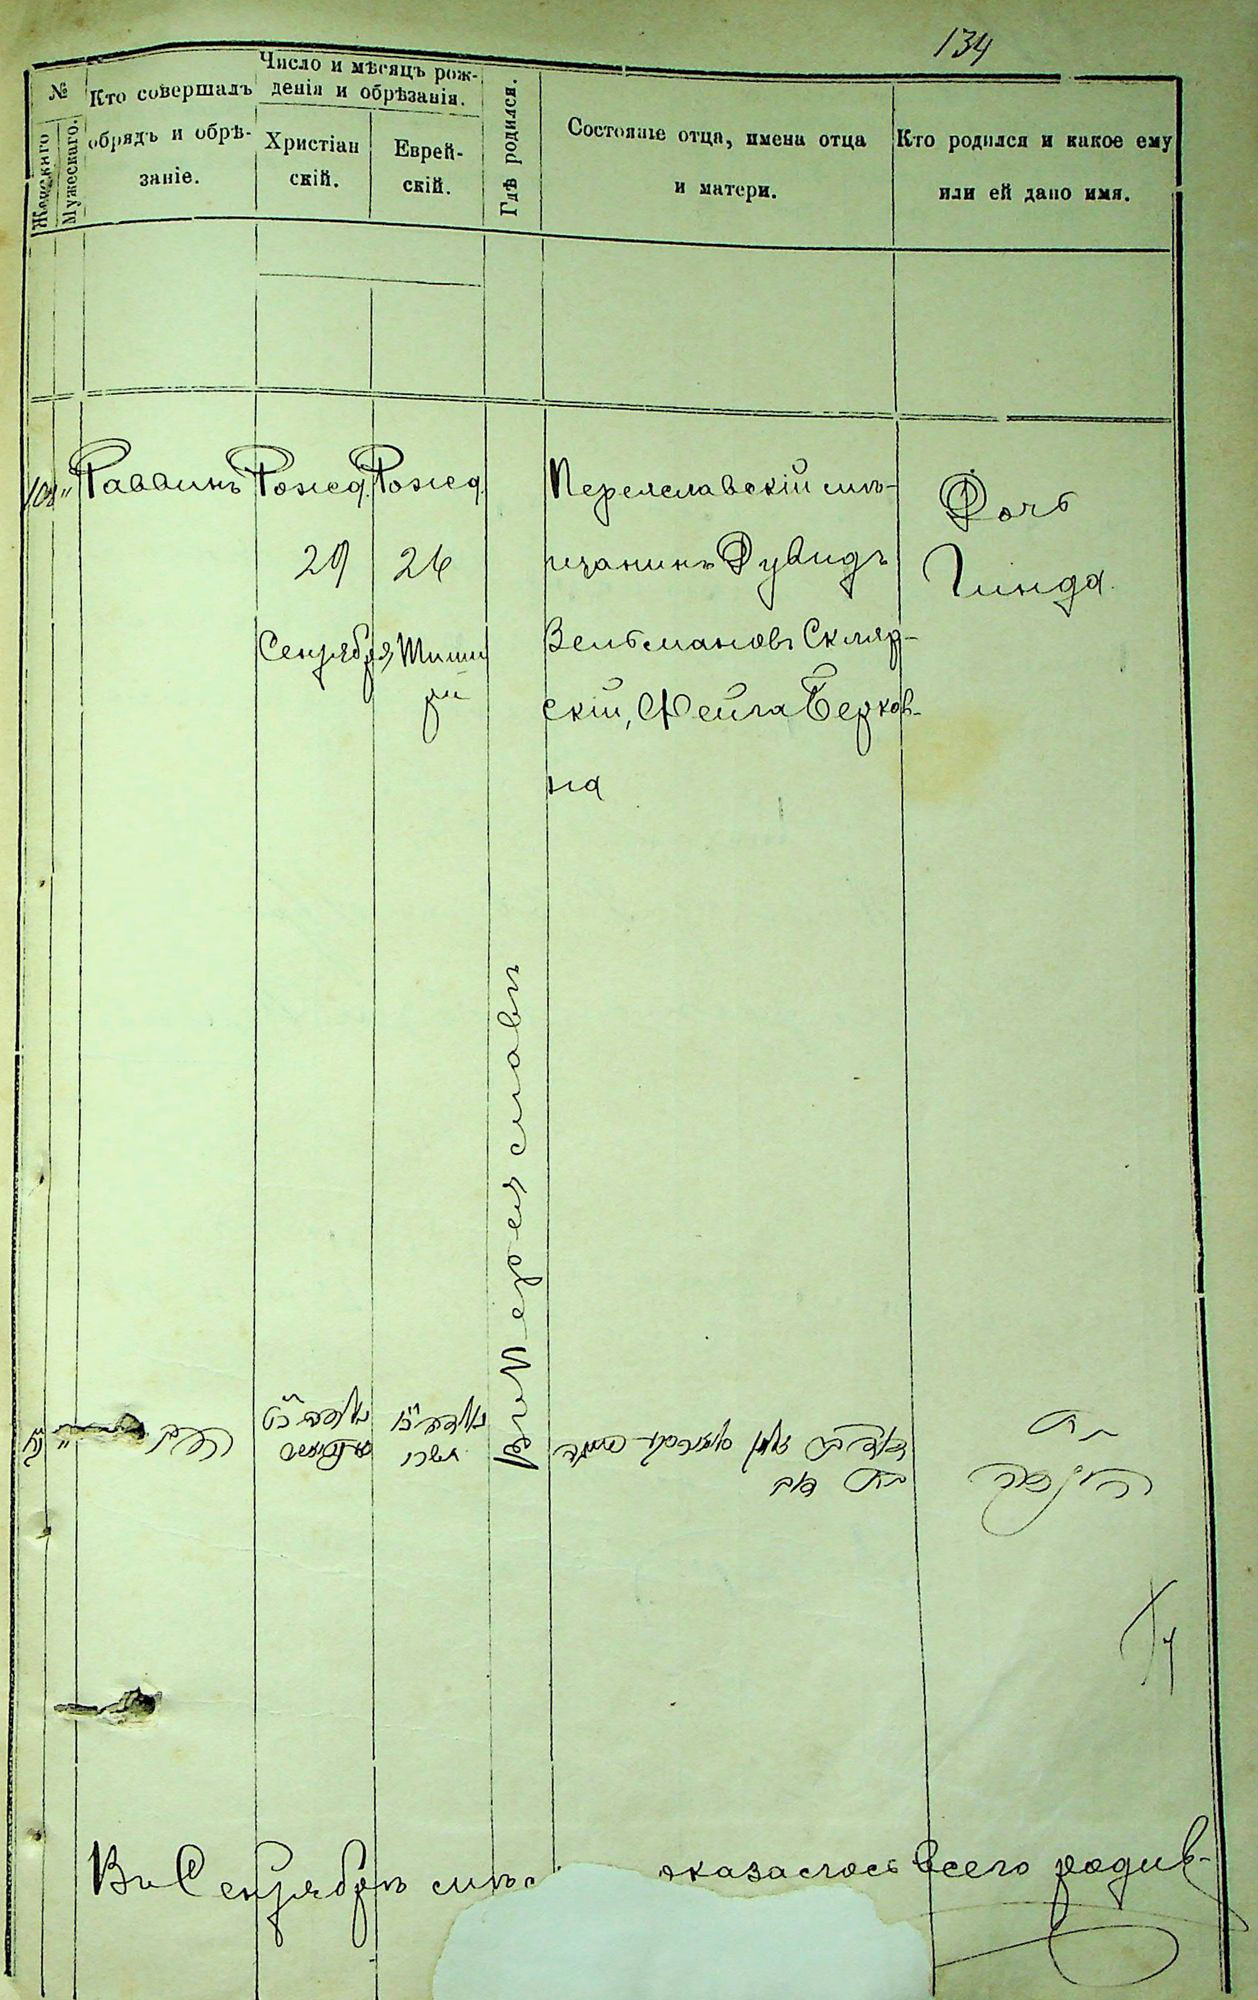 134
№
Женскаго
Мужескаго.
Кто совершалъ
обрядъ и обрѣ-
заніе.
Число и мѣсяцъ рож-
денія и обрѣзанія.
Христіан
скій.
Еврей-
скій.
Гдѣ родился.
Состояніе отца, имена отца
и матери.
Кто родился и какое ему
или ей дано имя.
Раввинъ
Рожд.
29
Сентября
Рожд
26
Тиш
ри
Въ Переяславѣ
Переяславскій мѣ-
щанинъ Дувидъ
Вельмановъ Скляр-
скій, Фейга Берков-
на
Дочь
Гинда
הרב
תשרי
בת
הינדה
Въ Сентябрѣ оказалось всего родив-